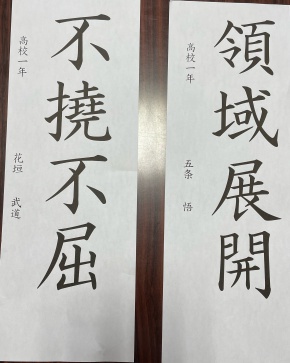 領域展開
高校一年 五条 悟
不撓不屈
高校一年 花垣 武道